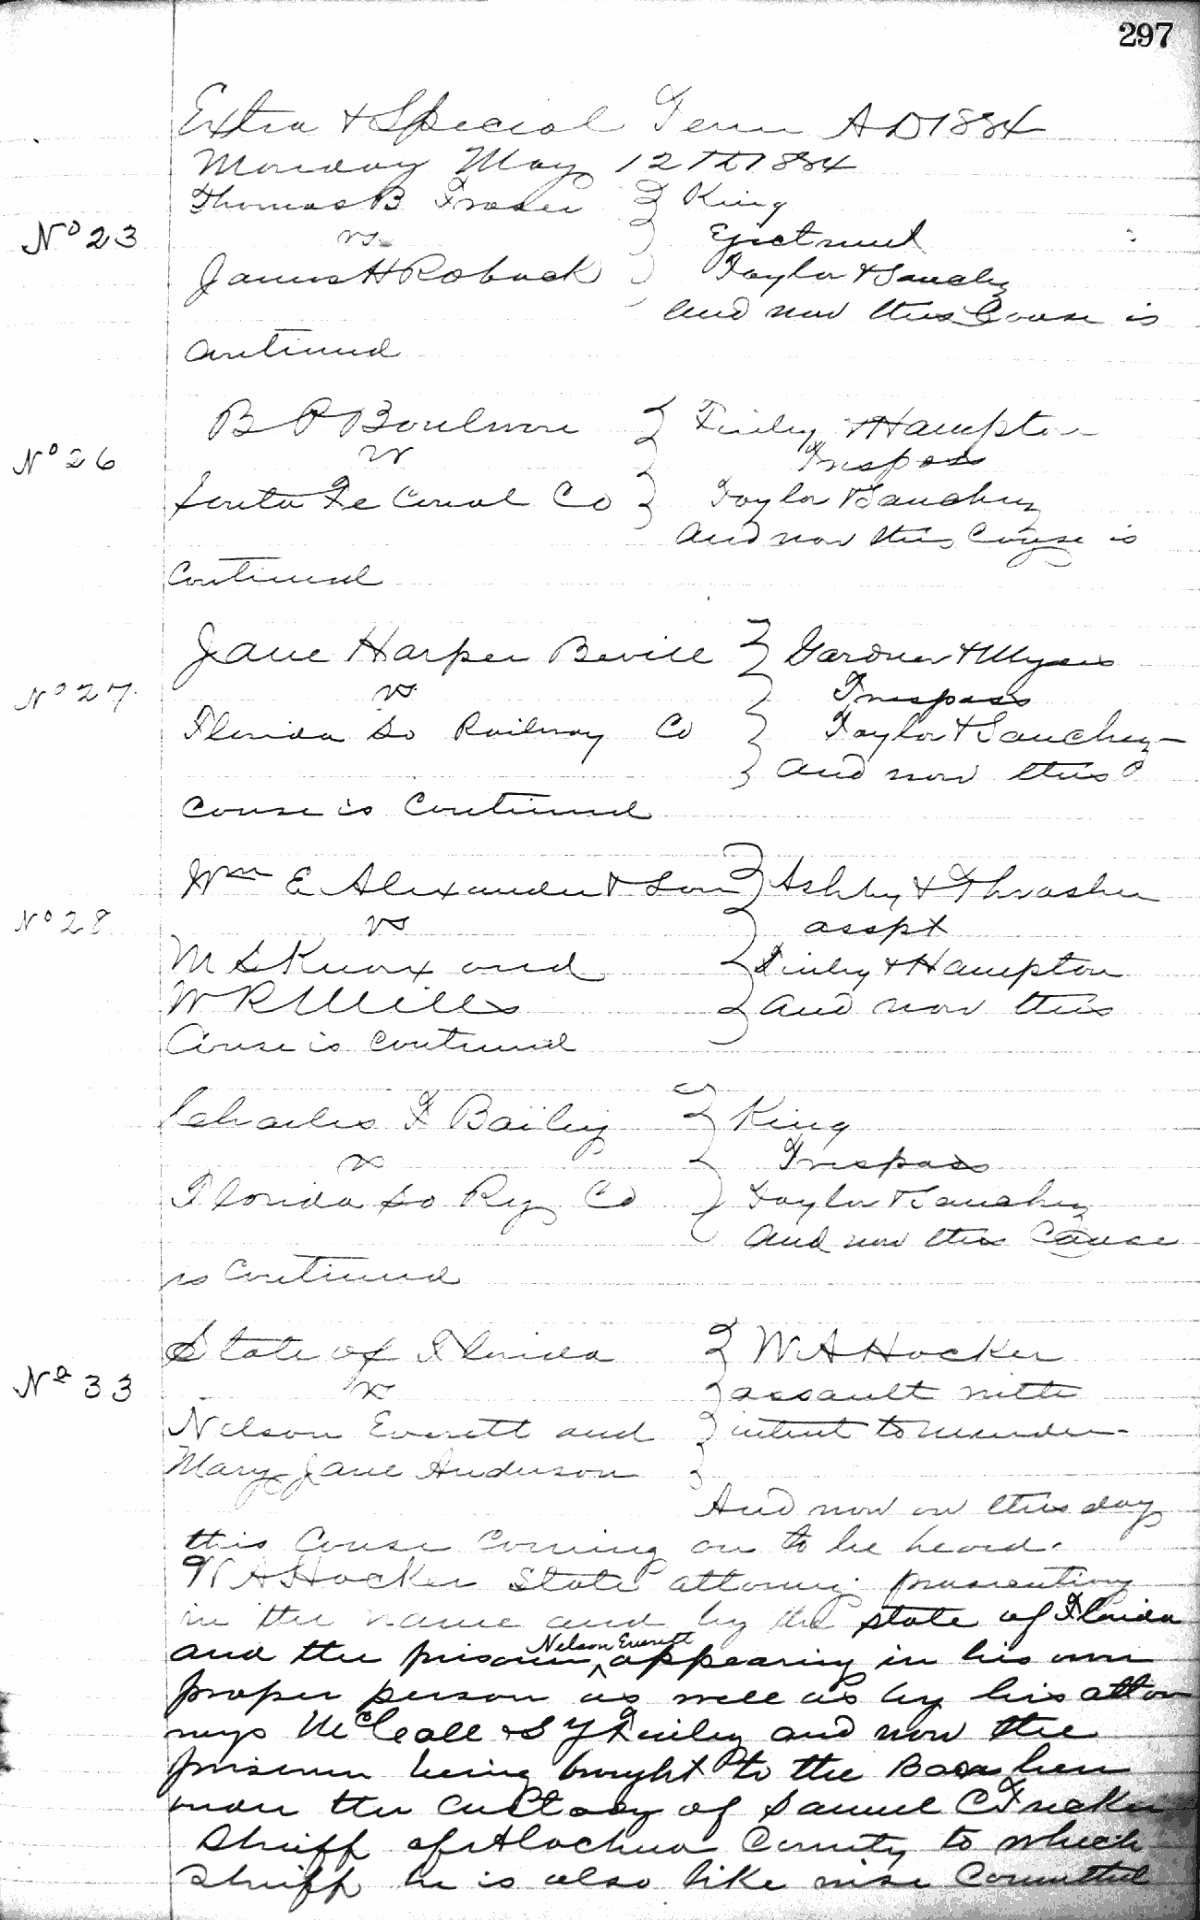 297
Extra & Special Term AD 1884
Monday May 12th 1884
Thomas B Fraser } King
No 23 vs } Ejectment
James H Roback } Taylor & Sanchez
and now this Cause is
Continued
B P Boulware } Finley & Hampton
No 26 vs } Trespass
Santa Fe Canal Co } Taylor & Sanchez
and now this Cause is
Continued
Jane Harper Bevill } Gardner &
No 27 vs } Trespass
Florida So Railway Co } Taylor & Sanchez
and now this
Cause is Continued
Wm E Alexander & Son } Ashby & Thrasher
No 28 vs } asspt
M S Knox and } Finley & Hampton
W R Mills } and now this
Cause is Continued
Charles F Bailey } King
vs } Trespass
Florida So Ry Co } Taylor & Sanchez
and now this Cause
is Continued
State of Florida } W A Hocker
No 33 vs } assault with
Nelson Everett and } intent to murder
Mary Jane Anderson }
And now on this day
this Cause coming on to be heard.
W A Hocker State attorney prosecuting
in the name and by the state of Florida
and the prisoner Nelson Everett appearing in his own
proper person as well as by his attor
neys McCall & S Y Finley and now the
prisoner being bought to the Bar here
under the custody of Samuel C Tucker
Shriff of Alachua County to which
Shriff he is also like wise Committed